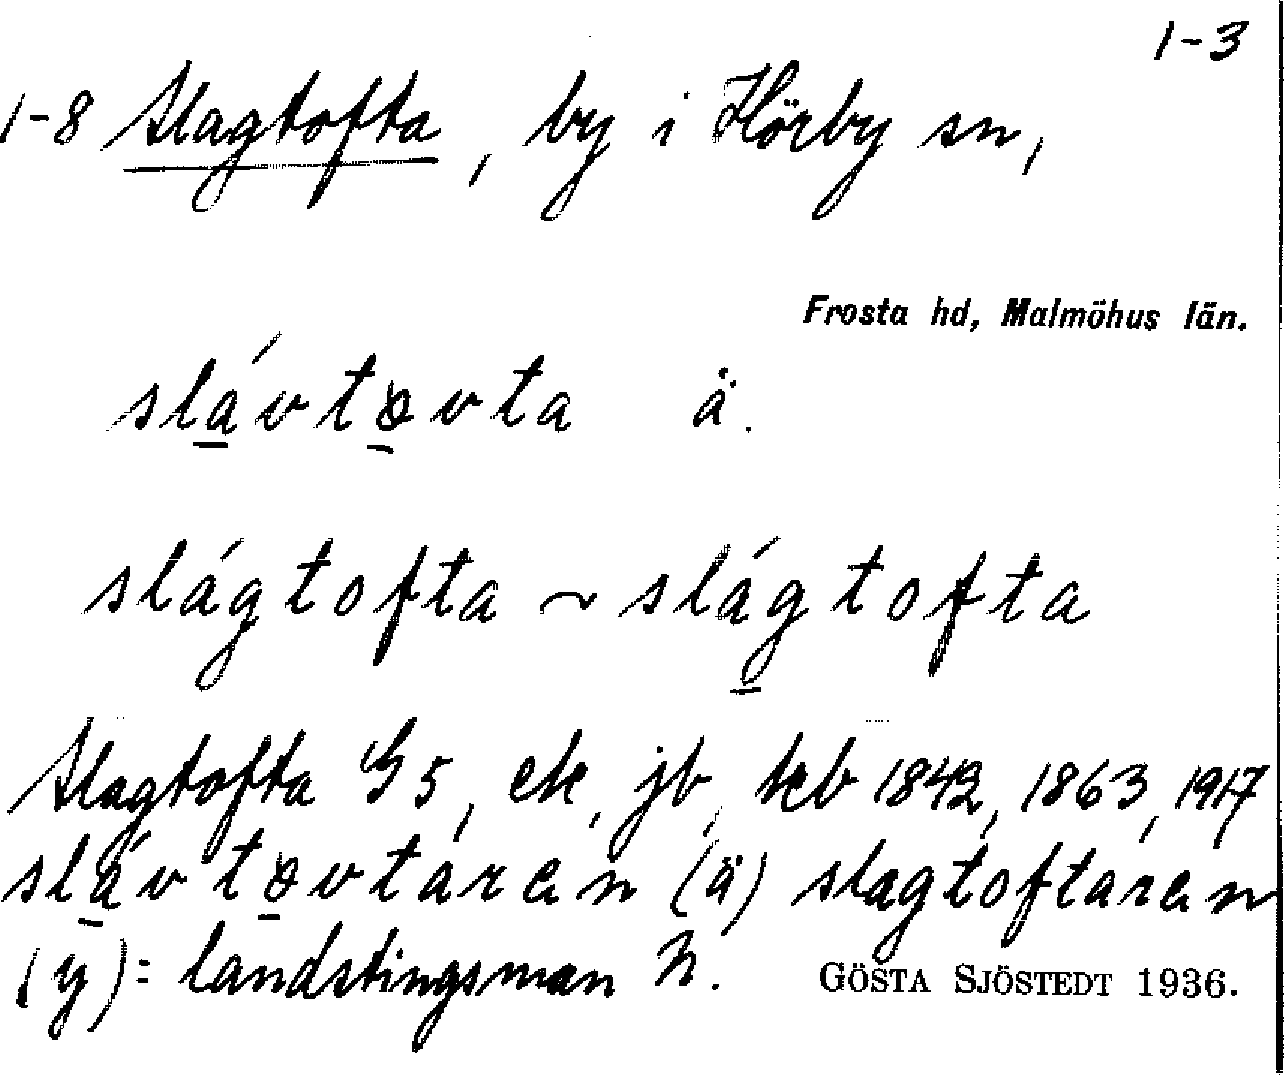 1-3
1-8 Slagtofta, by i Hörby sn,
Frosta hd, Malmöhus län.
slávtovta ä.
slágtofta ~ slágtofta
Slagtofta G5, ek, jb, kb 1842, 1863, 1917
slávtovtáren (ä) slagtoftáren
(y) = landstingsman N.
GÖSTA SJÖSTEDT 1936.